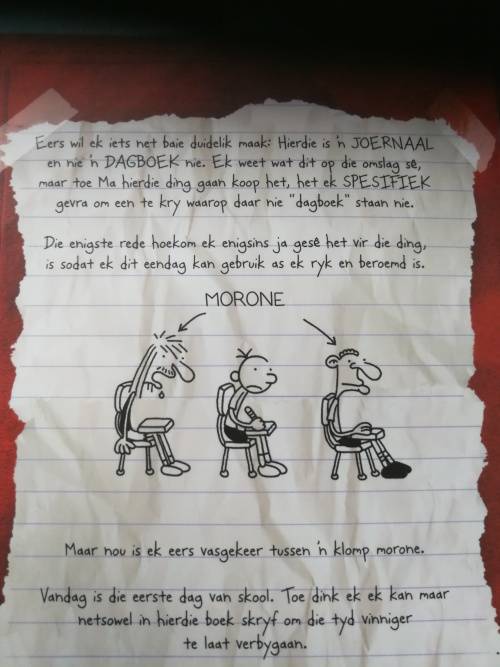 Eers wil ek iets net baie duidelik maak: Hierdie is 'n JOERNAAL
en nie 'n DAGBOEK nie. Ek weet wat dit op die omslag sê,
maar toe Ma hierdie ding gaan koop het, het ek SPESIFIEK
gevra om een te kry waarop daar nie "dagboek" staan nie.
Die enigste rede hoekom ek enigsins ja gesê het vir die ding,
is sodat ek dit eendag kan gebruik as ek ryk en beroemd is.
MORONE
Maar nou is ek eers vasgekeer tussen 'n klomp morone.
Vandag is die eerste dag van skool. Toe dink ek ek kan maar
netsowel in hierdie boek skryf om die tyd vinniger
te laat verbygaan.